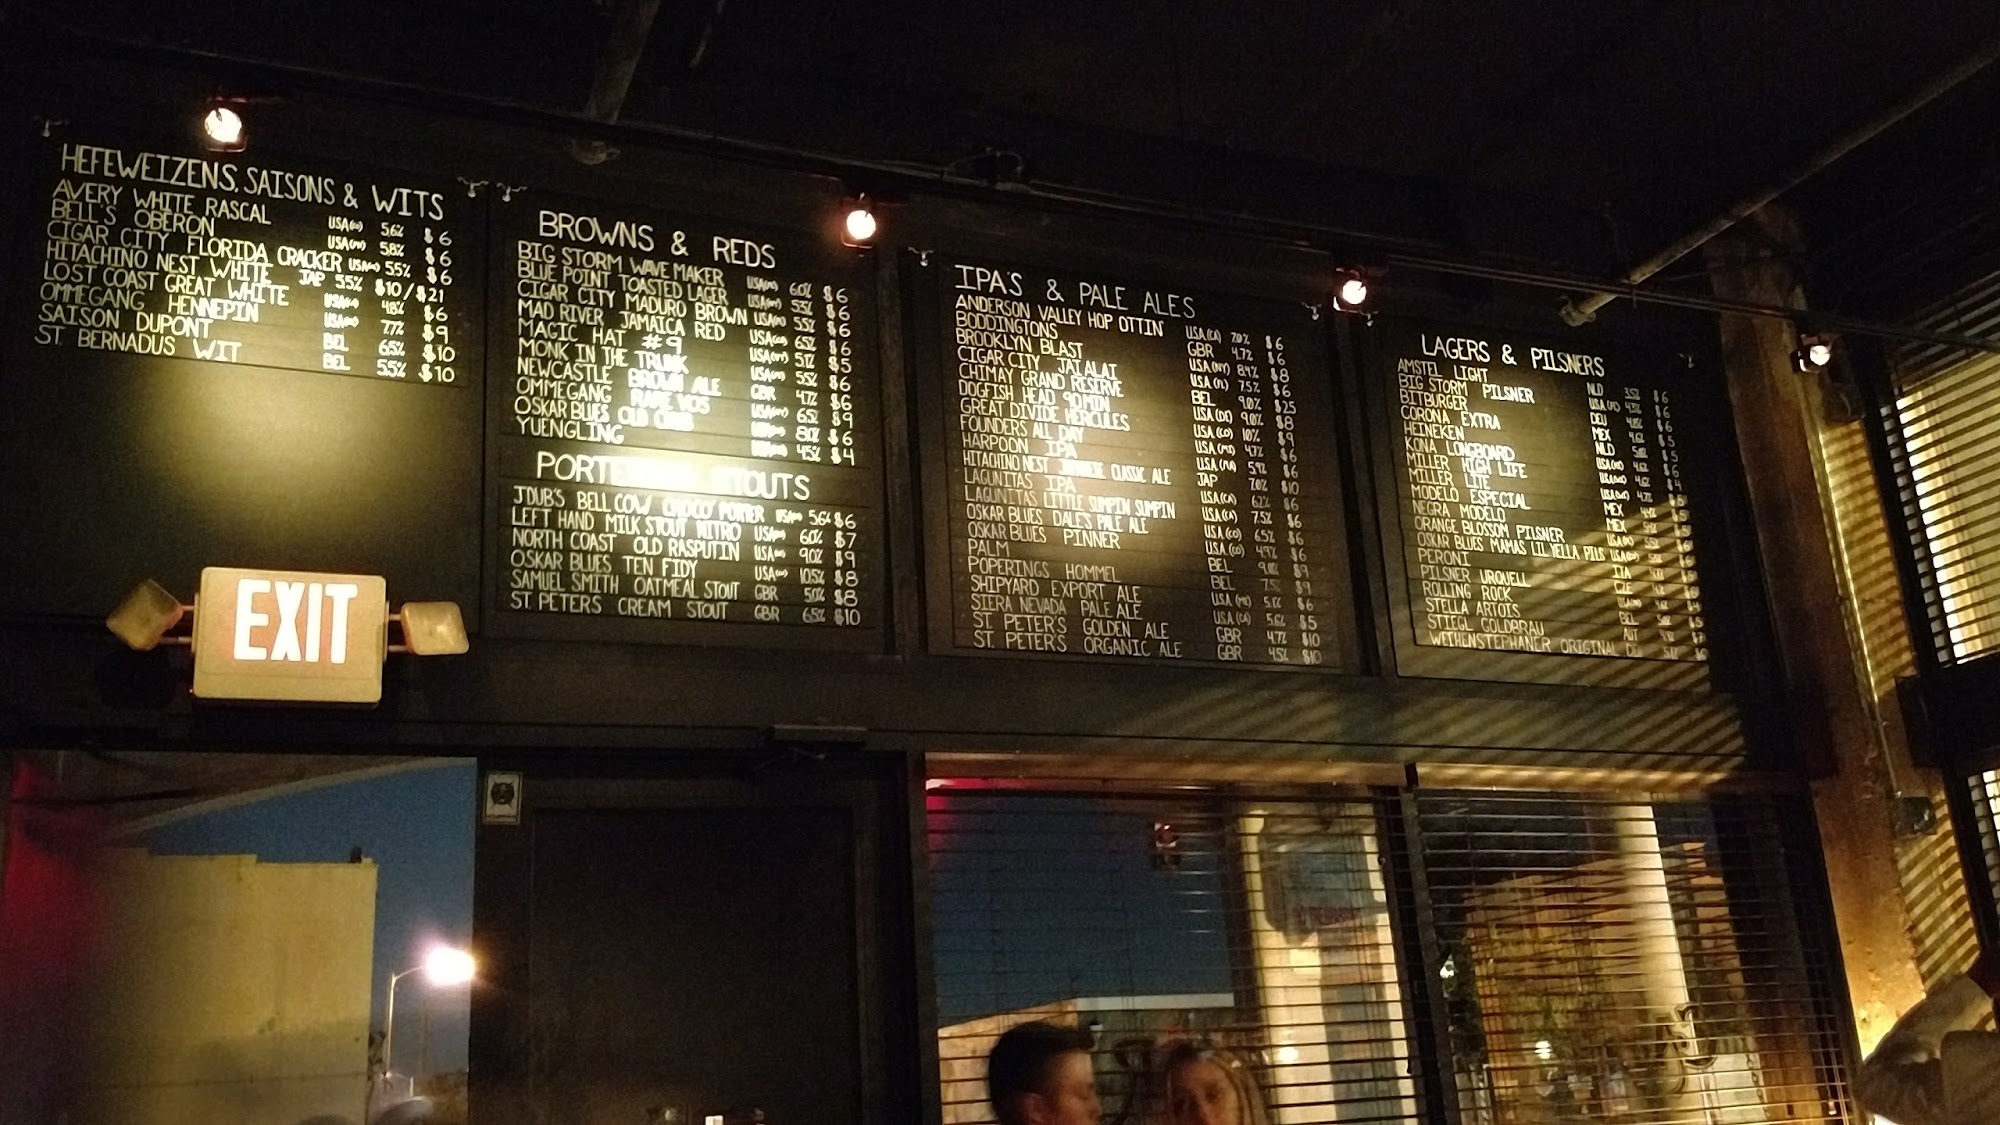 HEFEWEIZENS, SAISONS & WITS
AVERY WHITE RASCAL USA(CO) 5.6% $6
BELL'S OBERON USA(MI) 5.8% $6
CIGAR CITY FLORIDA CRACKER USA(FL) 5.5% $6
HITACHINO NEST WHITE JAP 5.5% $10/$21
LOST COAST GREAT WHITE USA(CA) 4.8% $6
OMMEGANG HENNEPIN USA(NY) 7.7% $9
SAISON DUPONT BEL 6.5% $10
ST. BERNADUS WIT BEL 5.5% $10
BROWNS & REDS
BIG STORM WAVE MAKER USA(FL) 6.0% $6
BLUE POINT TOASTED LAGER USA(NY) 5.5% $6
CIGAR CITY MADURO BROWN USA(FL) 5.5% $6
MAD RIVER JAMAICA RED USA(CA) 6.5% $6
MAGIC HAT #9 USA(VT) 5.1% $5
MONK IN THE TRUNK USA(FL) 5.5% $6
NEWCASTLE BROWN ALE GBR 4.7% $6
OMMEGANG RARE VOS USA(NY) 6.5% $9
OSKAR BLUES OLD CHUB 8.0% $6
YUENGLING 4.5% $4
PORTERS STOUTS
JDUB'S BELL COW CHOCO PORTER USA(FL) 5.6% $6
LEFT HAND MILK STOUT NITRO USA(CO) 6.0% $7
NORTH COAST OLD RASPUTIN USA(CA) 9.0% $9
OSKAR BLUES TEN FIDY USA(CO) 10.5% $8
SAMUEL SMITH OATMEAL STOUT GBR 5.0% $8
ST. PETERS CREAM STOUT GBR 6.5% $10
IPA'S & PALE ALES
ANDERSON VALLEY HOP OTTIN' USA(CA) 7.0% $6
BODDINGTONS GBR 4.7% $6
BROOKLYN BLAST USA(NY) 8.4% $8
CIGAR CITY JAI ALAI USA(FL) 7.5% $6
CHIMAY GRAND RESERVE BEL 9.0% $25
DOGFISH HEAD 90 MIN USA(DE) 9.0% $8
GREAT DIVIDE HERCULES USA(CO) 10% $9
FOUNDERS ALL DAY USA(MI) 4.7% $6
HARPOON IPA USA(MA) 5.9% $6
HITACHINO NEST JAPANESE CLASSIC ALE JAP 7.0% $10
LAGUNITAS IPA USA(CA) 6.2% $6
LAGUNITAS LITTLE SUMPIN SUMPIN USA(CA) 7.5% $6
OSKAR BLUES DALE'S PALE ALE USA(CO) 6.5% $6
OSKAR BLUES PINNER USA(CO) 4.9% $6
PALM BEL $9
POPERINGS HOMMEL BEL 7.5% $9
SHIPYARD EXPORT ALE USA(ME) 5.1% $6
SIERA NEVADA PALE ALE USA(CA) 5.6% $5
ST. PETER'S GOLDEN ALE GBR 4.7% $10
ST. PETER'S ORGANIC ALE GBR 4.5% $10
LAGERS & PILSNERS
AMSTEL LIGHT NLD 3.5% $6
BIG STORM PILSNER USA(FL) $6
BITBURGER DEU $6
CORONA EXTRA MEX 4.6% $5
HEINEKEN NLD $5
KONA LONGBOARD 4.6% $6
MILLER HIGH LIFE 4.6% $4
MILLER LITE
MODELO ESPECIAL MEX $5
NEGRA MODELO MEX $5
ORANGE BLOSSOM PILSNER
OSKAR BLUES MAMAS LIL YELLA PILS
PERONI ITA
PILSNER URQUELL CZE
ROLLING ROCK
STELLA ARTOIS BEL
STIEGL GOLDBRAU AUT
WEIHENSTEPHANER ORIGINAL
EXIT